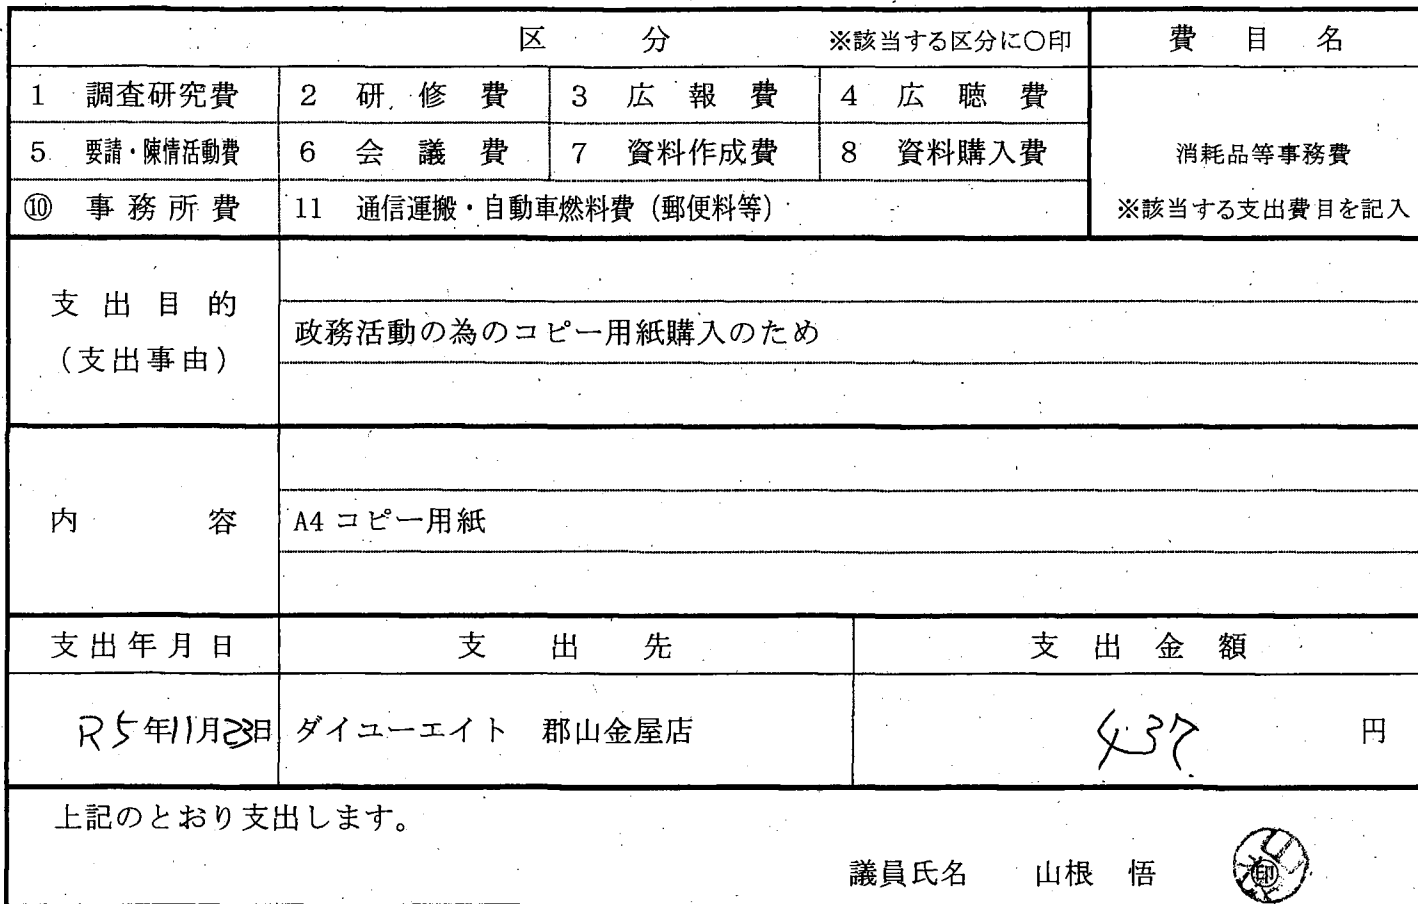 区 分 ※該当する区分に○印 費 目 名
1 調査研究費 2 研 修 費 3 広 報 費 4 広 聴 費
5 要請・陳情活動費 6 会 議 費 7 資料作成費 8 資料購入費 消耗品等事務費
⑩ 事 務 所 費 11 通信運搬・自動車燃料費(郵便料等) ※該当する支出費目を記入
支 出 目 的
(支出事由)
政務活動の為のコピー用紙購入のため
内 容 A4 コピー用紙
支出年月日 支 出 先 支 出 金 額
R5年11月23日 ダイユーエイト 郡山金屋店 437 円
上記のとおり支出します。
議員氏名 山根 悟 印